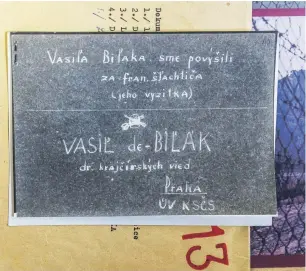 Dokum
1./
2./ D
3./ L
4./ D
VASIĽA BIĽAKA SME POVÝŠILI
ZA FRAN. ŠĽACHTICA
(JEHO VYZITKA)
VASIL de-BIĽAK
dr. krajčírských vied
Praha
ÚV KSČS
13